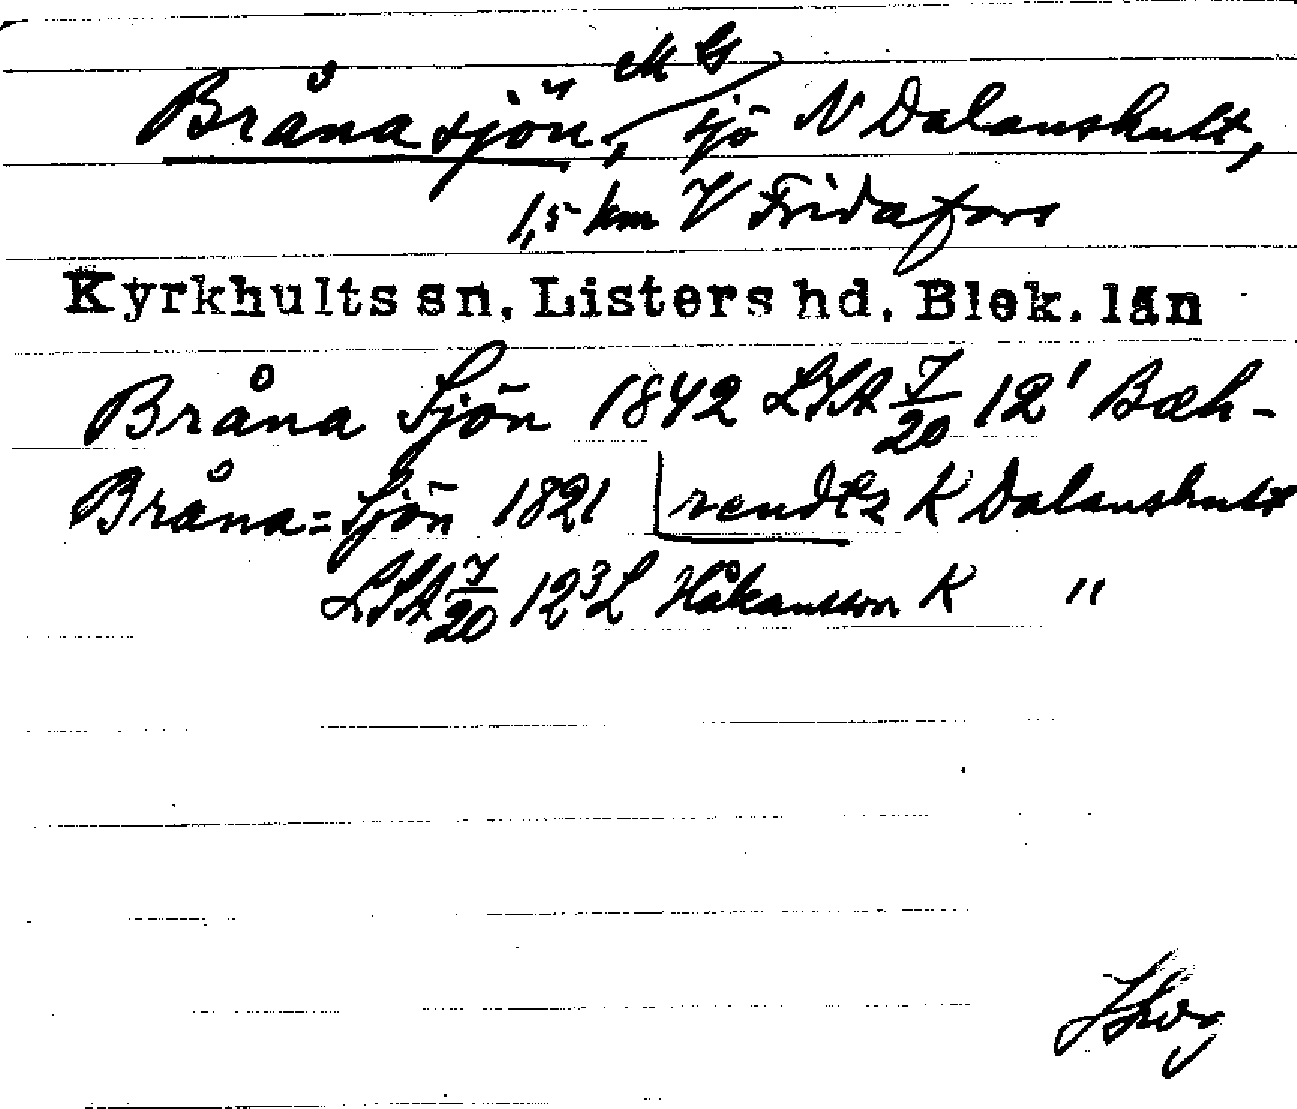 MG
Bråna sjön, sjö N Dalanshult,
1,5 km V Fridafors
Kyrkhults sn. Listers hd. Blek. län
Bråna Sjön 1842 LSA 7/20 12¹ Bæh-
Bråna=Sjön 1821 rendtz K Dalanshult
LSA 7/20 12³ L Håkansson K "